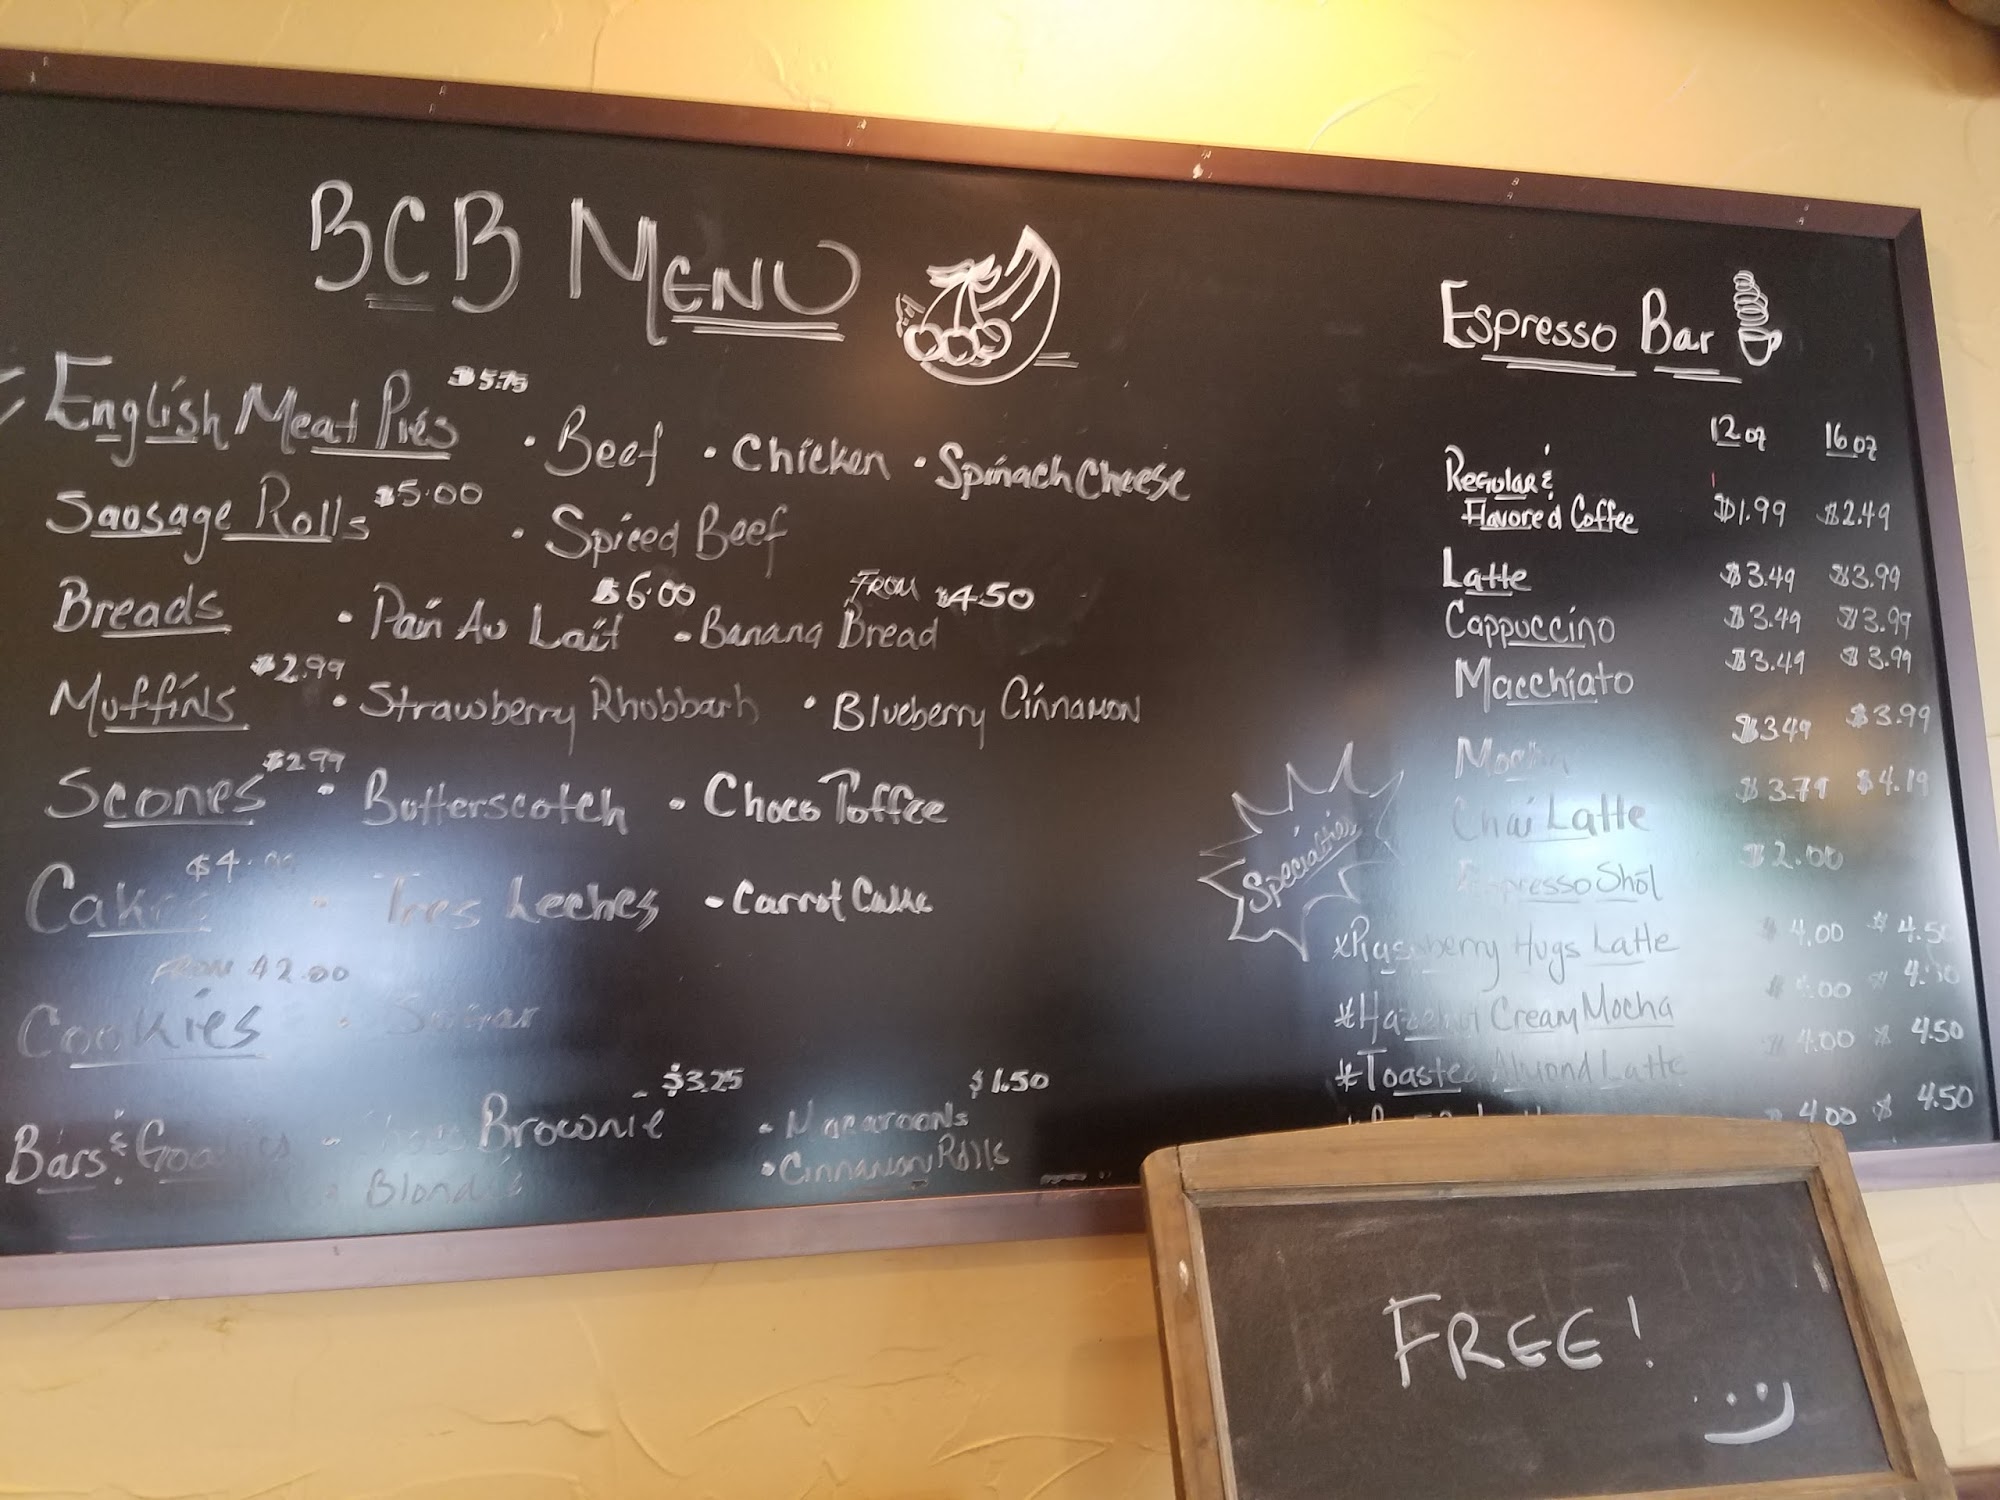 BCB MENU
English Meat Pies $5.75 · Beef · Chicken · Spinach Cheese
Sausage Rolls $5.00 · Spiced Beef
Breads · Pain Au Lait $6.00 · Banana Bread FROM $4.50
Muffins $2.99 · Strawberry Rhubbarb · Blueberry Cinnamon
Scones $2.99 · Butterscotch · Choco Toffee
Cakes $4. · Tres Leches · Carrot Cake
FROM $2.00
Cookies · Sugar
Bars & Goodies - Brownie - $3.25 · Macaroons $1.50
· Blondie · Cinnamon Rolls
Espresso Bar
12 oz 16 oz
Regular &
Flavored Coffee $1.99 $2.49
Latte $3.49 $3.99
Cappuccino $3.49 $3.99
Macchiato $3.49 $3.99
Mocha $3.49 $3.99
Chai Latte $3.79 $4.19
Espresso Shot $2.00
Specialties
*Raspberry Hugs Latte $4.00 $4.50
*Hazelnut Cream Mocha
*Toasted Almond Latte $4.00 $4.50
$4.00 $4.50
FREE!